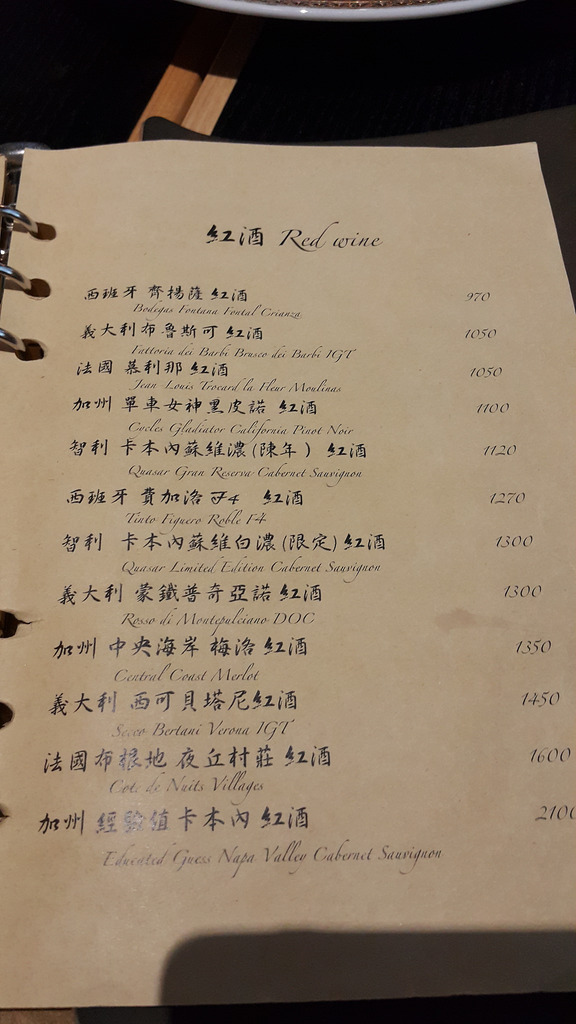 紅酒 Red wine
西班牙 齊揚薩 紅酒 970
Bodegas Fontana Fontal Crianza
義大利布魯斯可 紅酒 1050
Fattoria dei Barbi Brusco dei Barbi IGT
法國 慕利那 紅酒 1050
Jean-Louis Trocard la Fleur Moulinas
加州 單車女神黑皮諾 紅酒 1100
Cycles Gladiator California Pinot Noir
智利 卡本內蘇維濃(陳年) 紅酒 1120
Quasar Gran Reserva Cabernet Sauvignon
西班牙 費加洛 F4 紅酒 1270
Tinto Figuero Roble F4
智利 卡本內蘇維白濃(限定)紅酒 1300
Quasar Limited Edition Cabernet Sauvignon
義大利 蒙鐵普奇亞諾 紅酒 1300
Rosso di Montepulciano DOC
加州 中央海岸 梅洛 紅酒 1350
Central Coast Merlot
義大利 西可貝塔尼紅酒 1450
Secco Bertani Verona IGT
法國布根地 夜丘村莊 紅酒 1600
Cote de Nuits Villages
加州 經驗值卡本內 紅酒 2100
Eduented Guess Napa Valley Cabernet Sauvignon